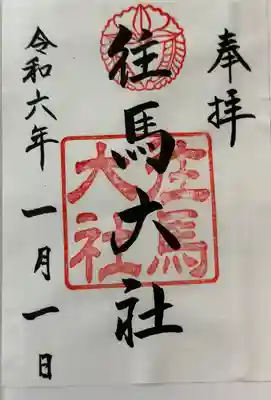 奉拝
往馬大社
往馬大社
令和六年一月一日